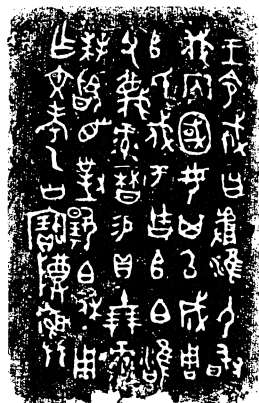 王令㦰曰𠭯淮夷敢
伐內國女其以成周
師氏戍于古𠂤白雍
父蔑彔曆易貝十朋彔
拜𩒨首對揚白休用
乍文考乙公寶𬯚彝